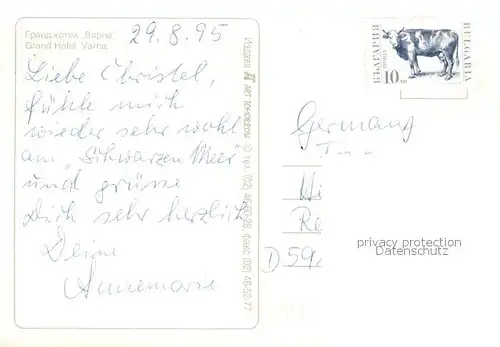 Грандхотел „Варна“
Grand Hotel Varna
29.8.95
Liebe Christel,
fühle mich
wieder sehr wohl
am „Schwarzen Meer"
und grüsse
Dich sehr herzlich
Deine
Annemarie
Издава АРТ ТОМОВ © тел. (02) 46-60-28, факс (02) 46-52-77
БЪЛГАРИЯ
поща
10
BULGARIA
Germany
D 59
privacy protection
Datenschutz